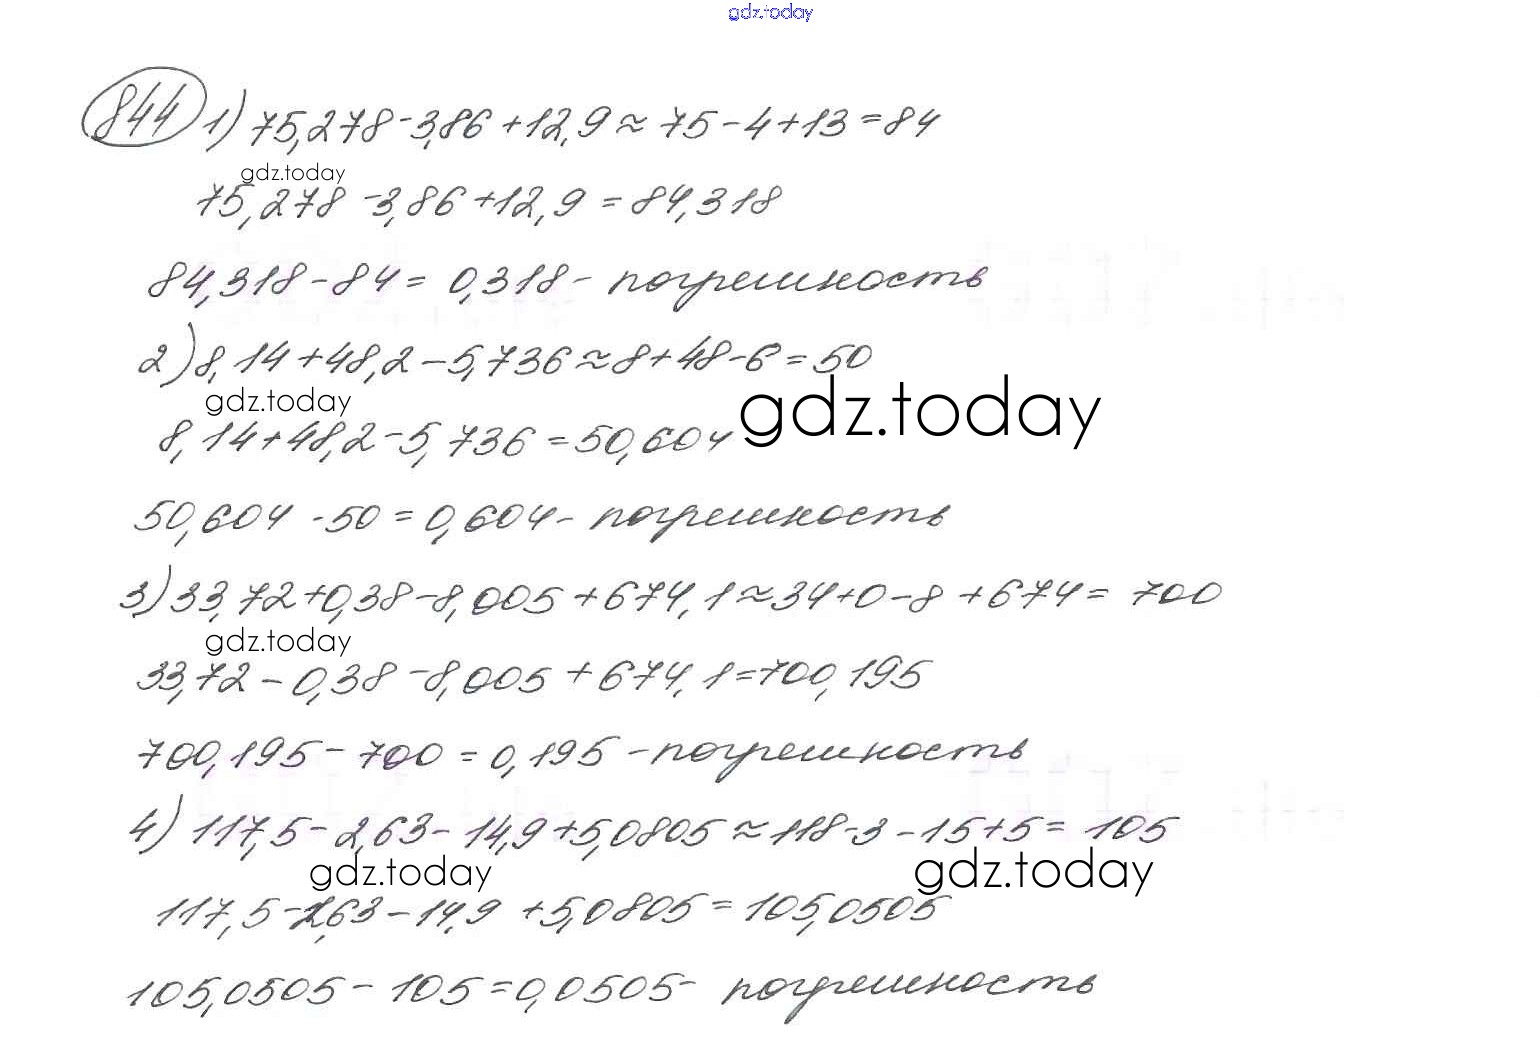 gdz.today
844 1) 75,278-3,86+12,9≈75-4+13=84
gdz.today
75,278-3,86+12,9=84,318
84,318-84=0,318- погрешность
2) 8,14+48,2-5,736≈8+48-6=50
gdz.today
gdz.today
8,14+48,2-5,736=50,604
50,604-50=0,604- погрешность
3) 33,72+0,38-8,005+674,1≈34+0-8+674=700
gdz.today
33,72-0,38-8,005+674,1=700,195
700,195-700=0,195- погрешность
4) 117,5-2,63-14,9+5,0805≈118-3-15+5=105
gdz.today
gdz.today
117,5-2,63-14,9+5,0805=105,0505
105,0505-105=0,0505- погрешность